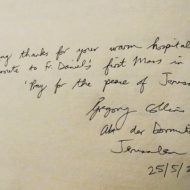 ny thanks for your warm hospital
route to Fr. Daniel's first Mass in
'Pray for the peace of Jerusa
Gregory Collins
Abt der Dormit
Jerusalem
25/5/